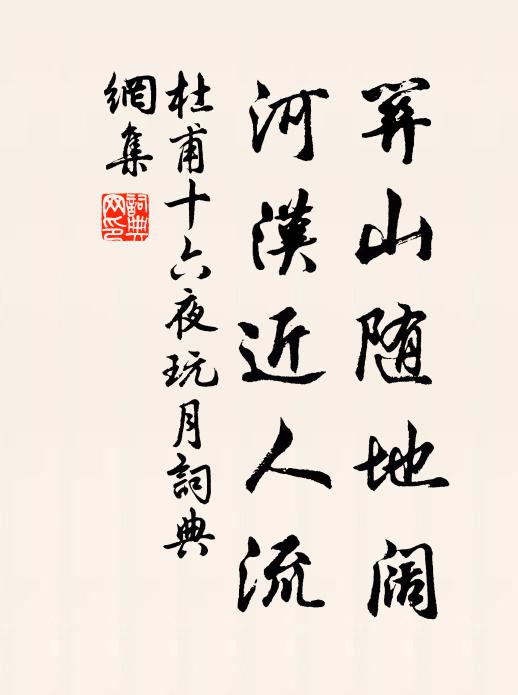 关山随地阔
河漢近人流
杜甫十六夜玩月詞典
網集
詞典
网印